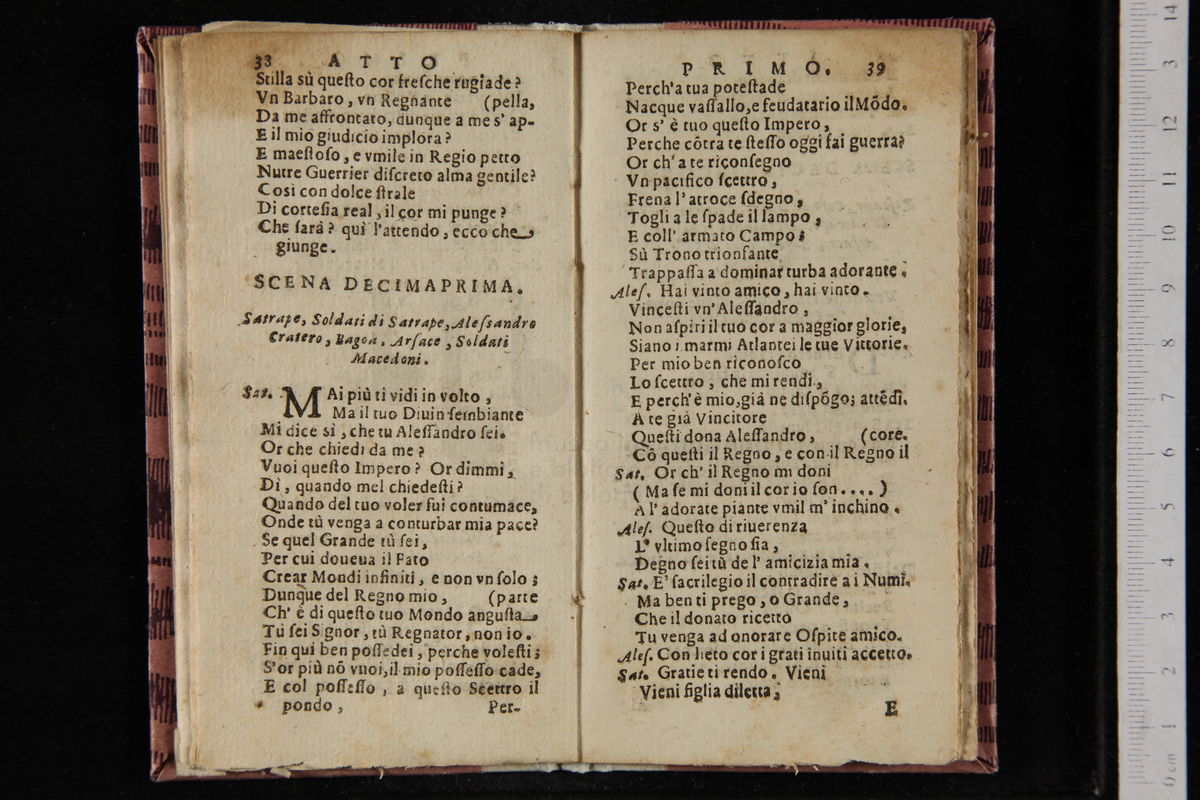 38 ATTO
Stilla sù queſto cor freſche rugiade?
Vn Barbaro, vn Regnante (pella,
Da me affrontato, dunque a me s' ap-
E il mio giudicio implora?
E maeſtoſo, e vmile in Regio petto
Nutre Guerrier diſcreto alma gentile?
Così con dolce ſtrale
Di corteſia real, il cor mi punge?
Che ſarà? quì l'attendo, ecco che
giunge.
SCENA DECIMAPRIMA.
Satrape, Soldati di Satrape, Aleſsandro
Cratero, Bagoa, Arſace, Soldati
Macedoni.
Sat. MAi più ti vidi in volto,
Ma il tuo Diuin ſembiante
Mi dice sì, che tu Aleſſandro ſei.
Or che chiedi da me?
Vuoi queſto Impero? Or dimmi,
Dì, quando mel chiedeſti?
Quando del tuo voler fui contumace,
Onde tù venga a conturbar mia pace?
Se quel Grande tù ſei,
Per cui doueua il Fato
Crear Mondi infiniti, e non vn ſolo;
Dunque del Regno mio, (parte
Ch' è di queſto tuo Mondo anguſta
Tù ſei Signor, tù Regnator, non io.
Fin quì ben poſſedei, perche voleſti;
S'or più nõ vuoi, il mio poſſeſſo cade,
E col poſſeſſo, a queſto Scettro il
pondo, Per-
PRIMO. 39
Perch'a tua poteſtade
Nacque vaſſallo, e feudatario il Mõdo.
Or s' è tuo queſto Impero,
Perche cõtra te ſteſſo oggi fai guerra?
Or ch' a te riconſegno
Vn pacifico ſcettro,
Frena l' atroce ſdegno,
Togli a le ſpade il lampo,
E coll' armato Campo;
Sù Trono trionfante
Trappaſſa a dominar turba adorante.
Aleſ. Hai vinto amico, hai vinto.
Vinceſti vn' Aleſſandro,
Non aſpiri il tuo cor a maggior glorie,
Siano i marmi Atlantei le tue Vittorie.
Per mio ben riconoſco
Lo ſcettro, che mi rendi,
E perch'è mio, già ne diſpõgo; attẽdi.
A te già Vincitore
Queſti dona Aleſſandro, (core.
Cõ queſti il Regno, e con il Regno il
Sat. Or ch' il Regno mi doni
(Ma ſe mi doni il cor io ſon....)
A l' adorate piante vmil m' inchino.
Aleſ. Queſto di riuerenza
L' vltimo ſegno ſia,
Degno ſei tù de l' amicizia mia.
Sat. E' ſacrilegio il contradire a i Numi.
Ma ben ti prego, o Grande,
Che il donato ricetto
Tu venga ad onorare Oſpite amico.
Aleſ. Con lieto cor i grati inuiti accetto.
Sat. Gratie ti rendo. Vieni
Vieni figlia diletta;
E
14
13
12
11
10
9
8
7
6
5
4
3
2
1
0 cm